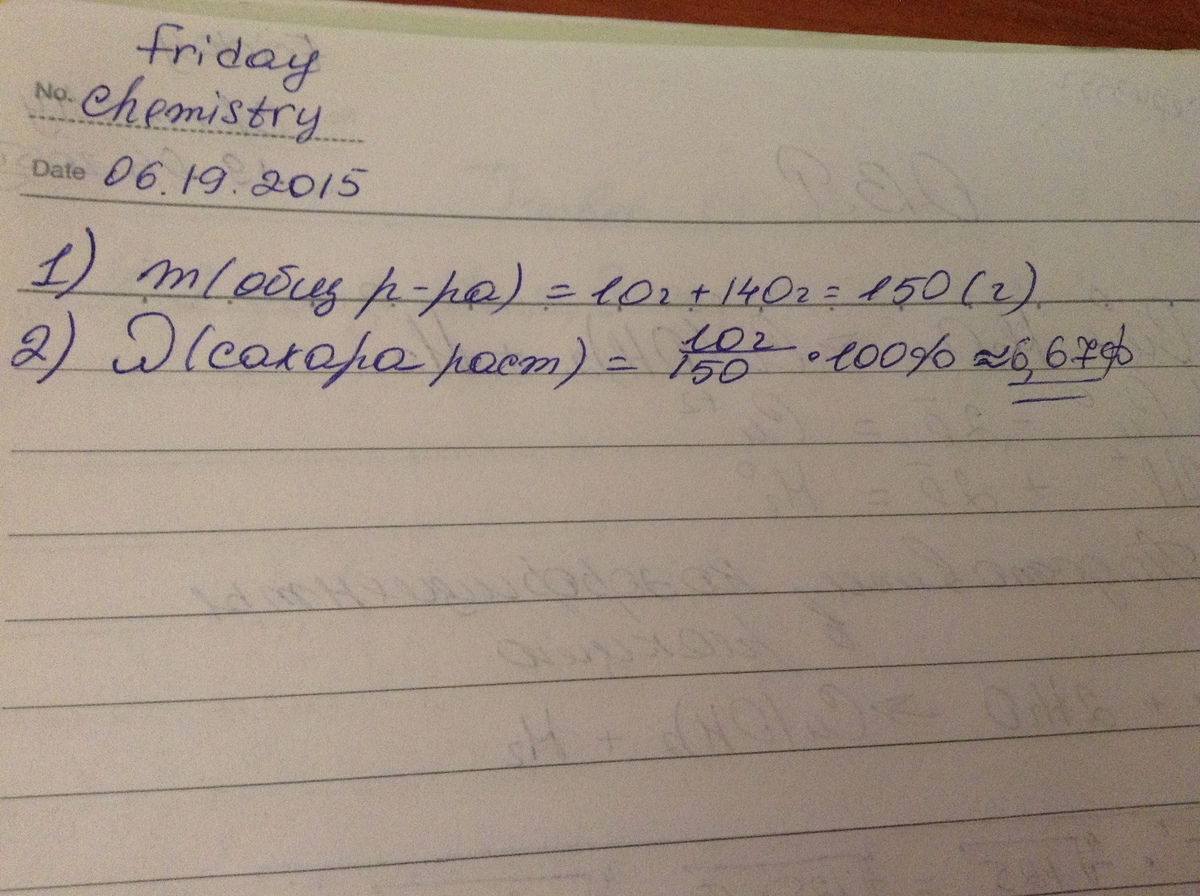 friday
No. Chemistry
Date 06.19.2015
1) m(общ р-ра) = 10г + 140г = 150 (г)
2) (сахара раст) = 10г/150 · 100% ≈ 6,67%